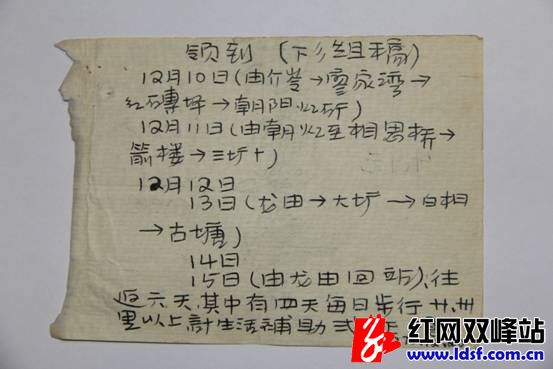 领到(下乡组稿)
12月10日(由 →廖家湾→
红砖坪→朝阳
12月11日(由朝 至相思桥→
箭楼→三圻+
12月12日
13日(龙田→大圻→白相
→古塘)
14日
15日(由龙田回站)往
返六天,其中有四天每日步行廿、卅
里以上計生活補助弍
红网双峰站
www.ldsf.com.cn